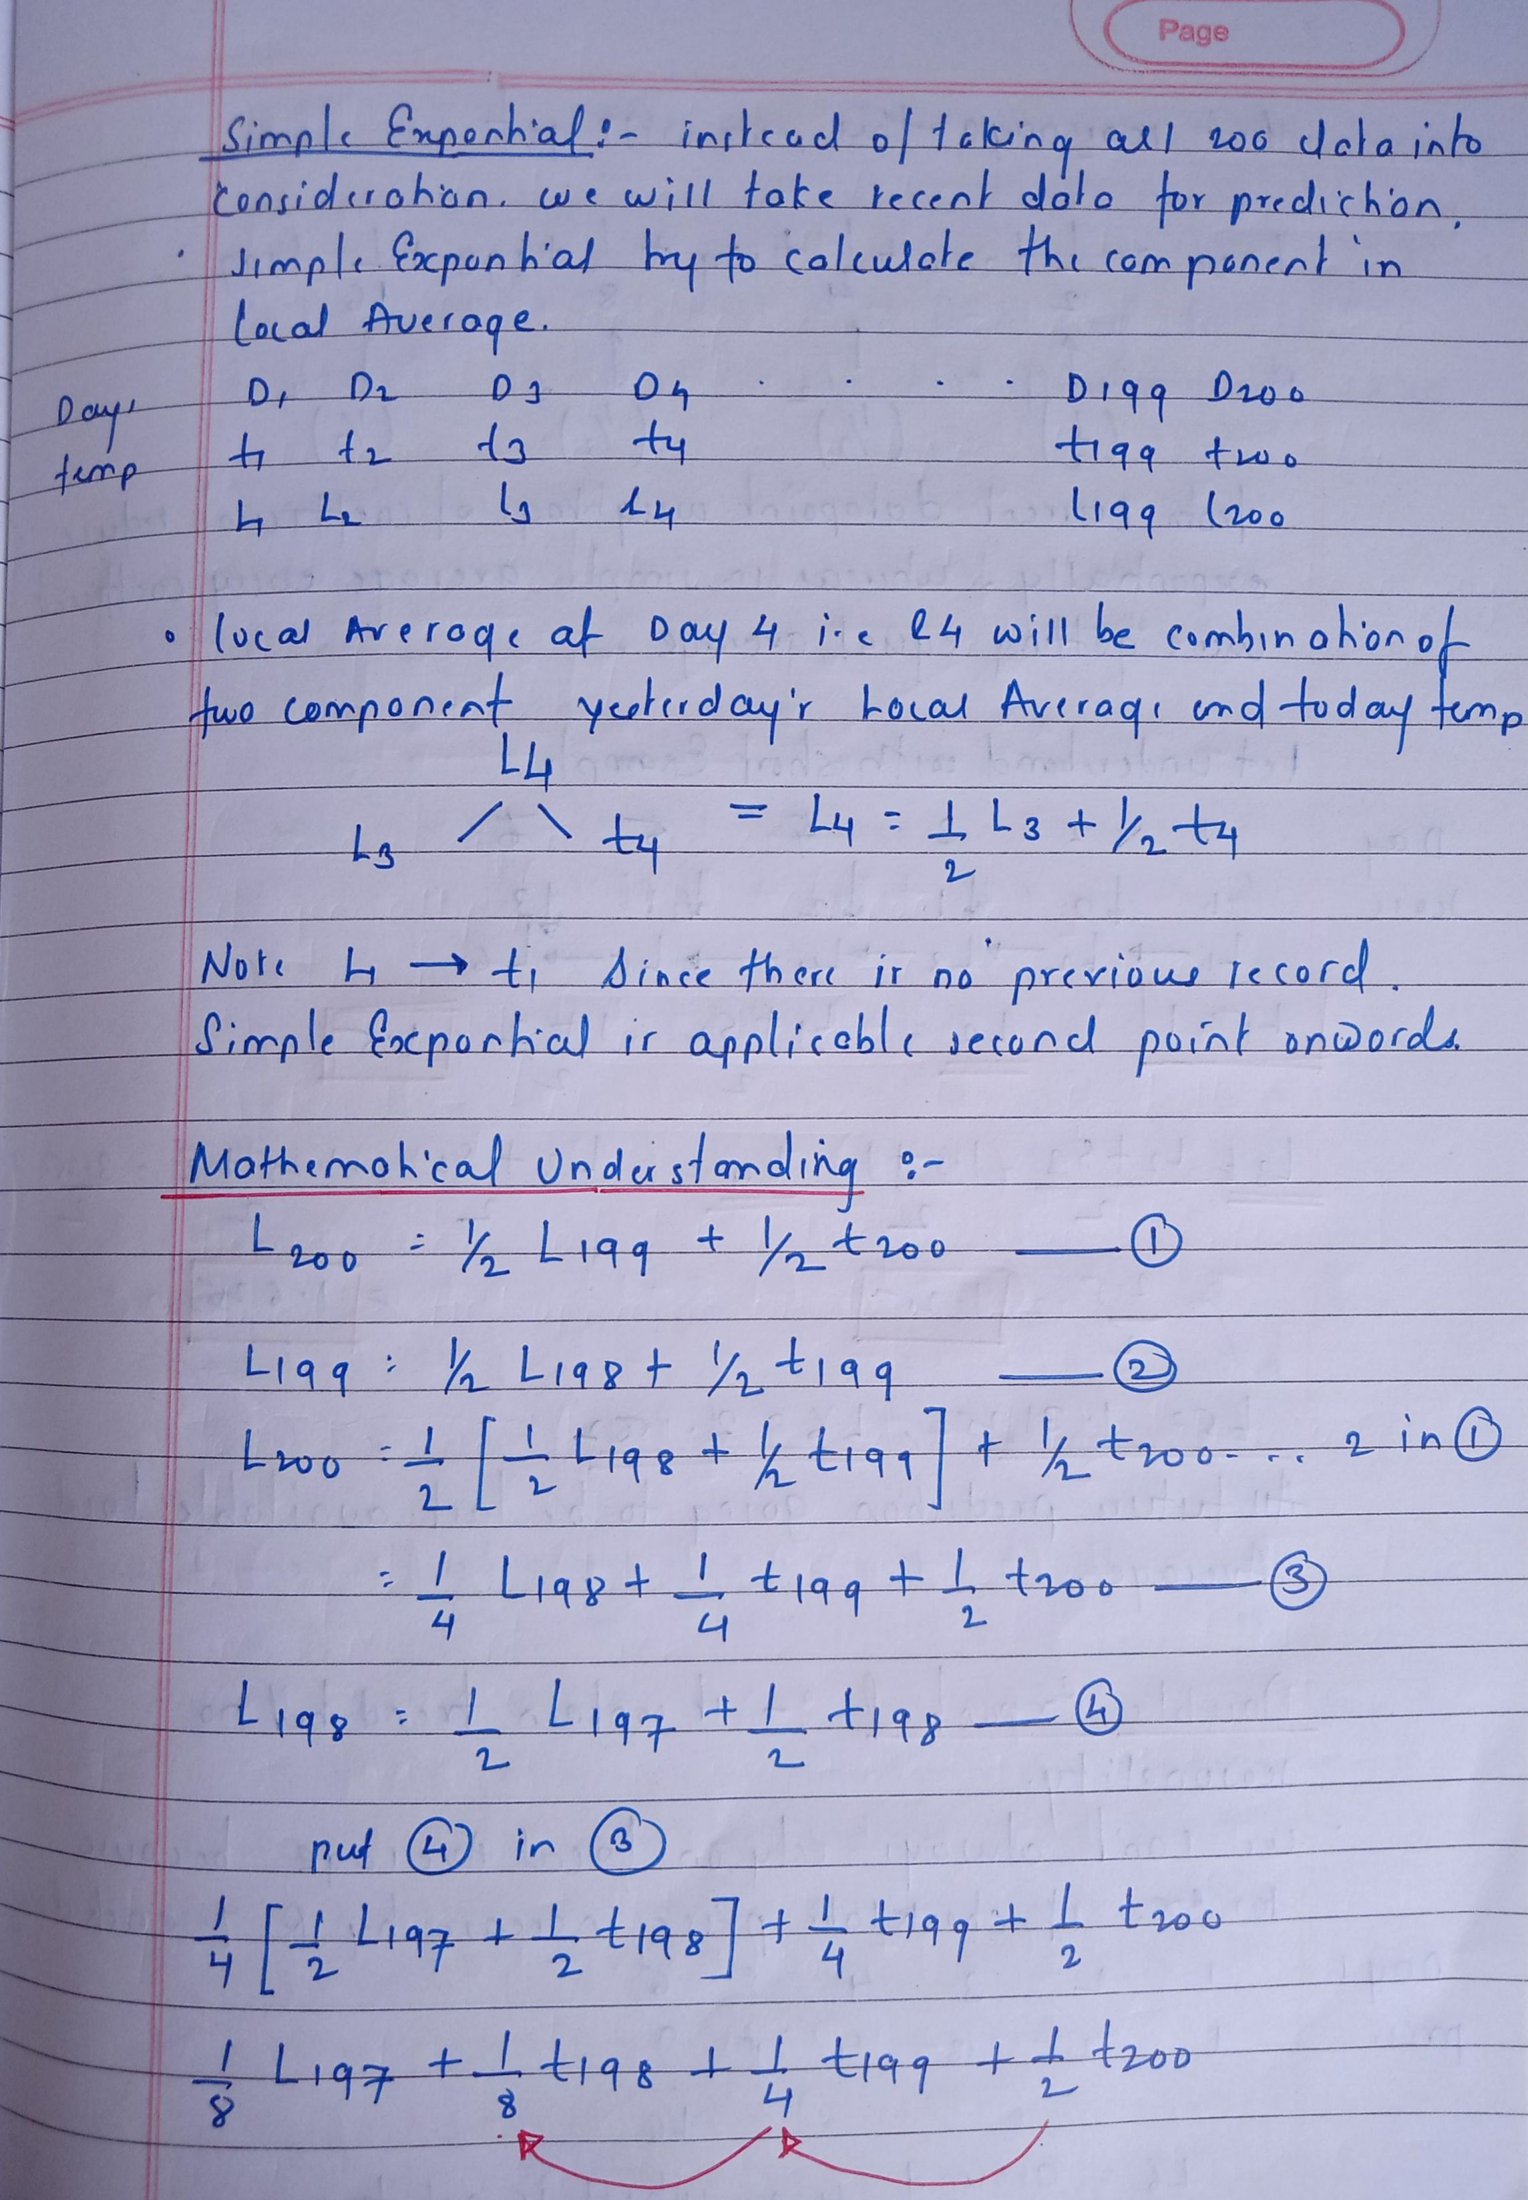 Page
Simple Exponhial :- instead of taking all 200 data into
consideration. we will take recent data for prediction.
• simple Exponhial try to calculate the component in
local Average.
Days D1 D2 D3 D4 . . . . D199 D200
temp t1 t2 t3 t4 t199 t200
L1 L2 L3 L4 L199 L200
• local Average at Day 4 i.e L4 will be combination of
two component yesterday's Local Average and today temp
L4
L3 / \ t4 = L4 = 1/2 L3 + 1/2 t4
Note L1 → t1 Since there is no previous record.
Simple Exponhial is applicable second point onwards.
Mathematical Understanding :-
L200 = 1/2 L199 + 1/2 t200 — ①
L199 = 1/2 L198 + 1/2 t199 — ②
L200 = 1/2 [1/2 L198 + 1/2 t199] + 1/2 t200 - ... 2 in ①
= 1/4 L198 + 1/4 t199 + 1/2 t200 — ③
L198 = 1/2 L197 + 1/2 t198 — ④
put ④ in ③
1/4 [1/2 L197 + 1/2 t198] + 1/4 t199 + 1/2 t200
1/8 L197 + 1/8 t198 + 1/4 t199 + 1/2 t200